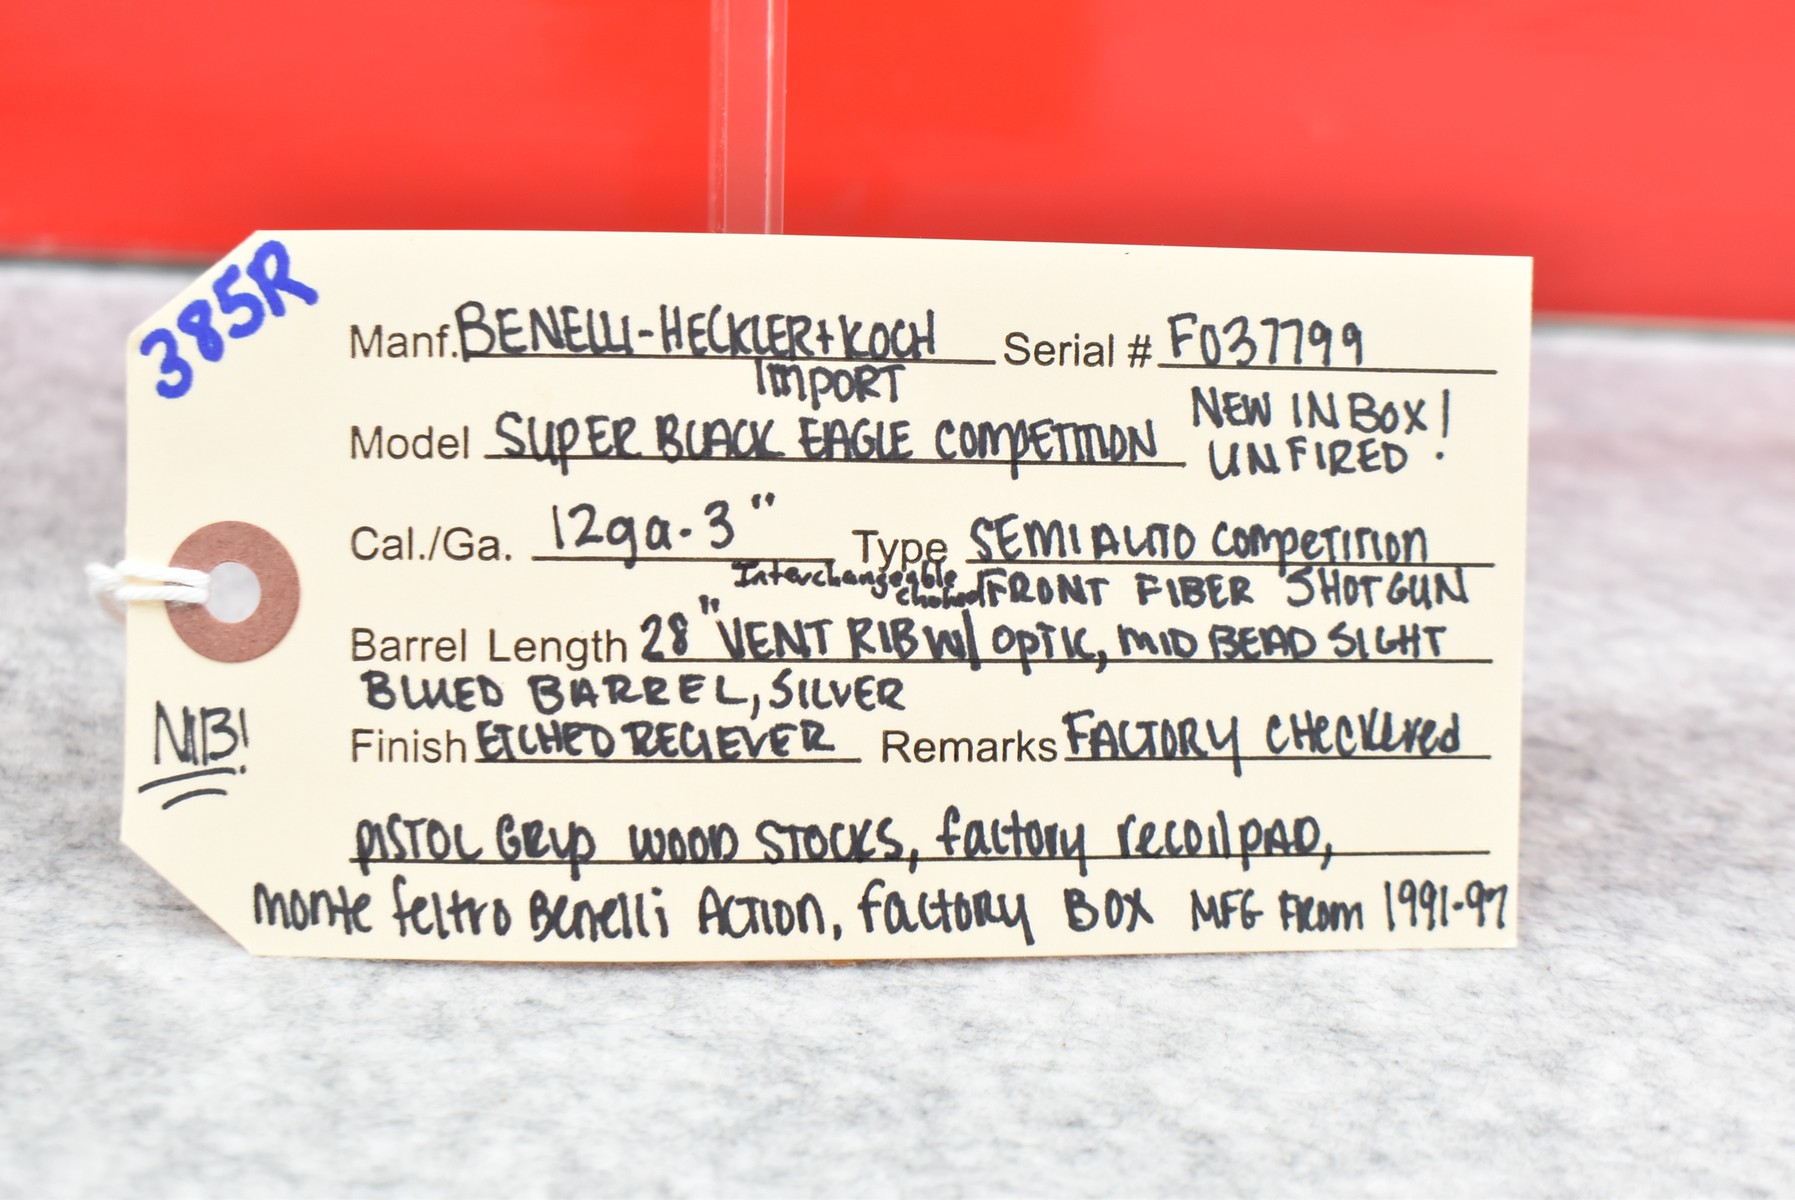 385R
Manf. BENELLI-HECKLER+KOCH Serial # F037799
IMPORT
NEW IN BOX!
Model SUPER BLACK EAGLE COMPETITION UNFIRED!
Cal./Ga. 12ga.3" Type SEMI AUTO COMPETITION
Interchangeable FRONT FIBER SHOTGUN
choked
Barrel Length 28" VENT RIB W/ OPTIC, MID BEAD SIGHT
BLUED BARREL, SILVER
NIB!
Finish ETCHED RECIEVER Remarks FACTORY CHECKERED
PISTOL GRIP WOOD STOCKS, factory recoil PAD,
Monte feltro Benelli Action, factory BOX MFG FROM 1991-97